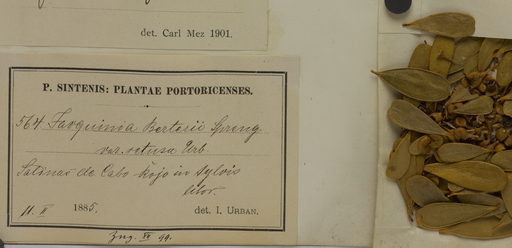 det. Carl Mez 1901.
P. SINTENIS: PLANTAE PORTORICENSES.
564. Jaquinia Berterii Spreng
var. retusa Urb
Salinas de Cabo-Rojo in sylvis
litor.
11. II 1885. det. I. URBAN.